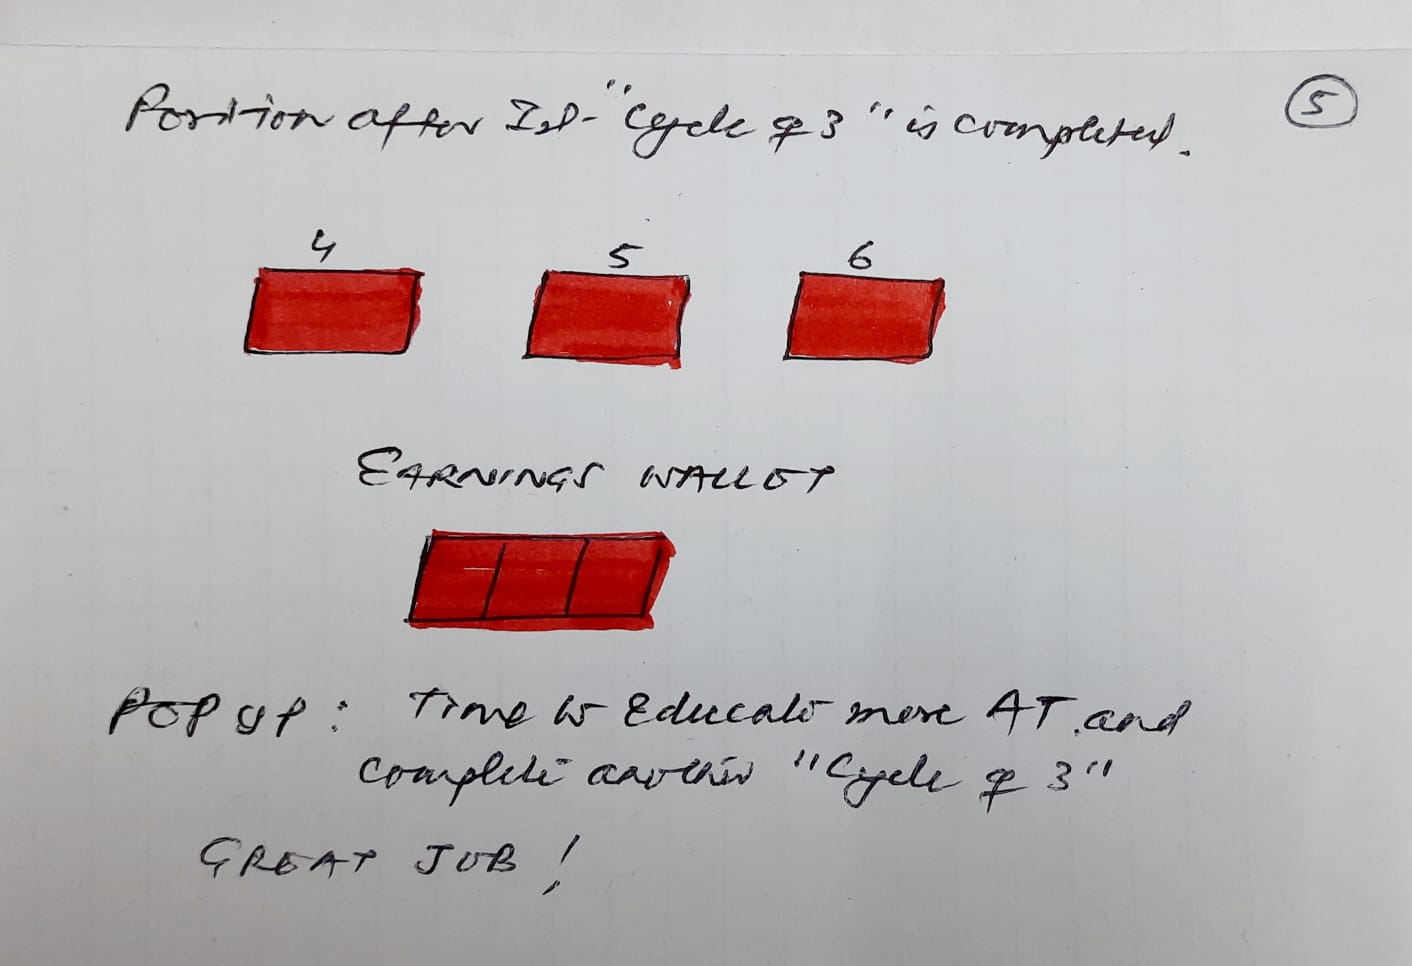 Position after Ist- "Cycle of 3" is completed.
5
4 5 6
EARNINGS WALLET
POP UP: Time to Educate more AT and
complete another "Cycle of 3"
GREAT JOB!